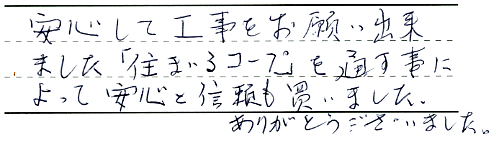 安心して工事をお願い出来
ました「住まいるコープ」を通す事に
よって安心と信頼も買いました。
ありがとうございました。